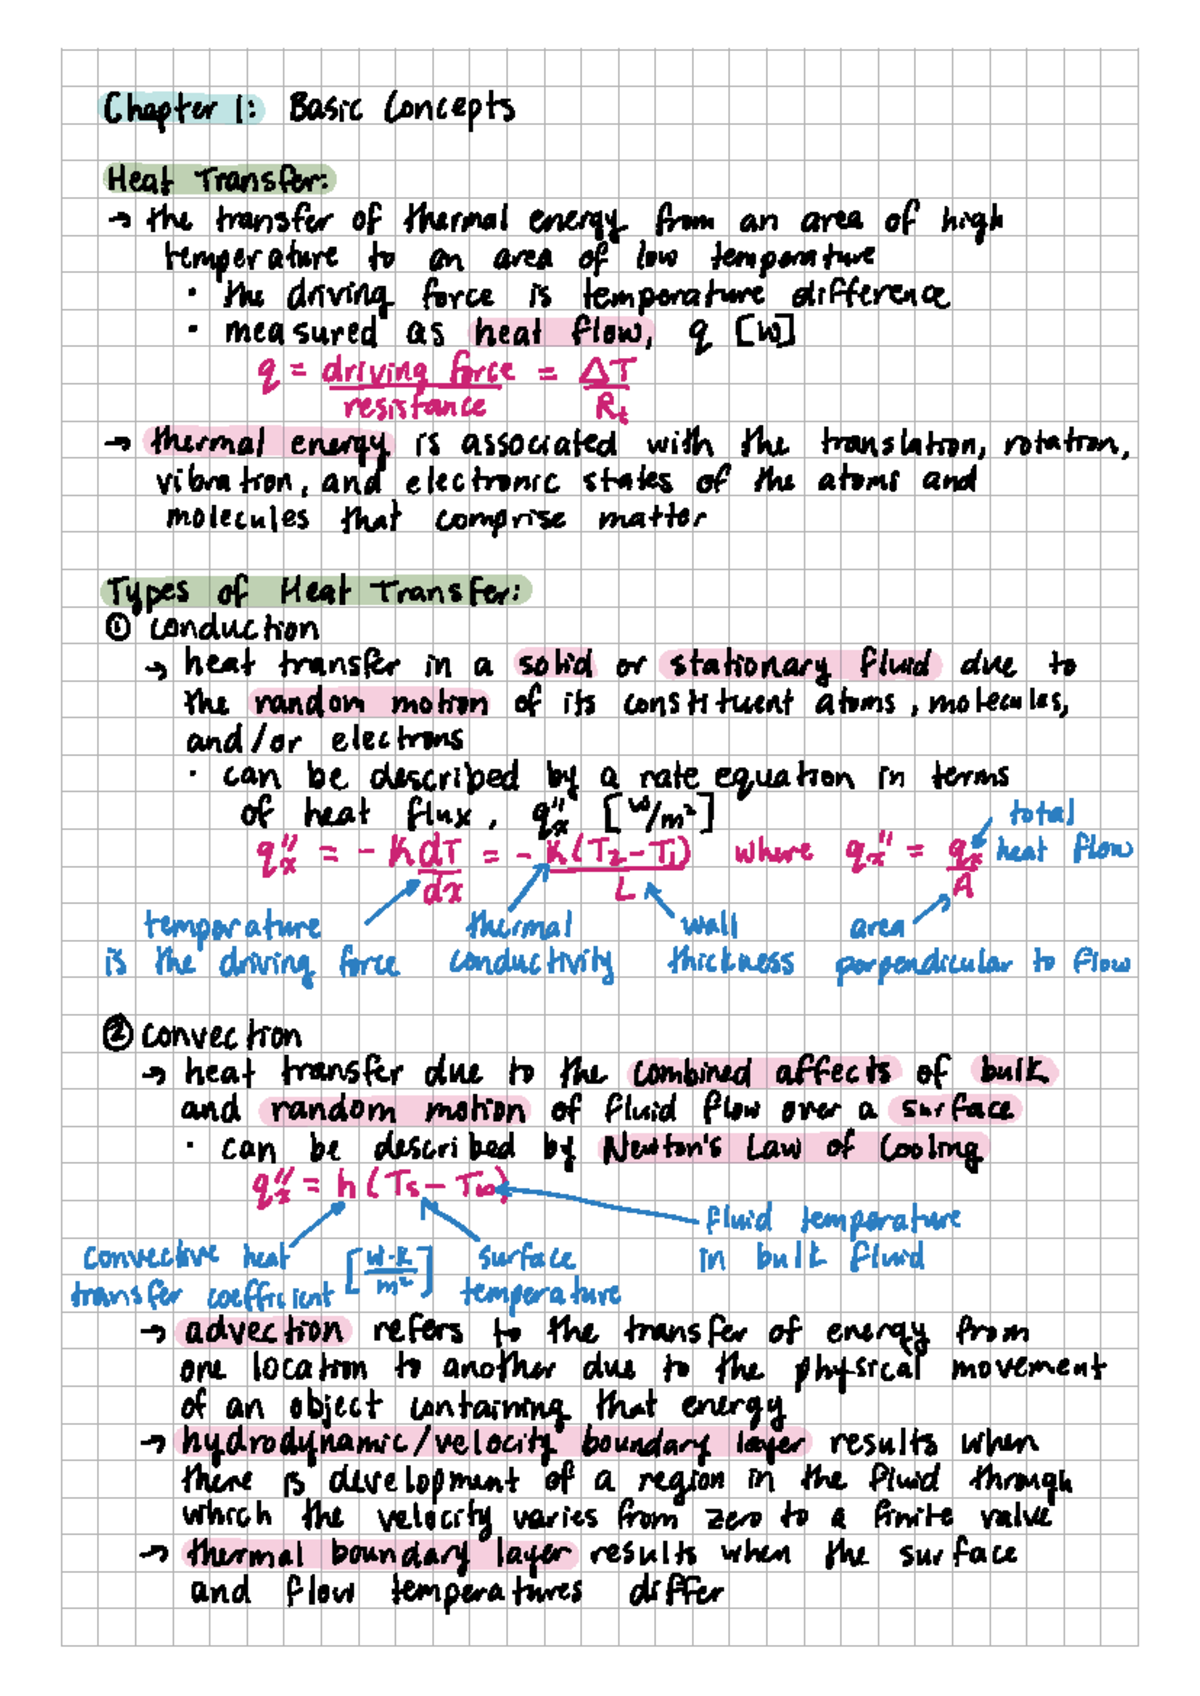 Chapter 1: Basic Concepts
Heat Transfer:
→ the transfer of thermal energy from an area of high
temperature to an area of low temperature
• the driving force is temperature difference
• measured as heat flow, q [W]
q = driving force / resistance = ΔT / Rt
→ thermal energy is associated with the translation, rotation,
vibration, and electronic states of the atoms and
molecules that comprise matter
Types of Heat Transfer:
① conduction
→ heat transfer in a solid or stationary fluid due to
the random motion of its constituent atoms, molecules,
and/or electrons
• can be described by a rate equation in terms
of heat flux, q''x [W/m²]
total
q''x = -k dT/dx = -k(T2-T1)/L where qx'' = qx/A heat flow
temperature thermal wall area
is the driving force conductivity thickness perpendicular to flow
② convection
→ heat transfer due to the combined affects of bulk
and random motion of fluid flow over a surface
• can be described by Newton's Law of Cooling
q''x = h(Ts - T∞)
fluid temperature
convective heat [W·K/m²] surface in bulk fluid
transfer coefficient temperature
→ advection refers to the transfer of energy from
one location to another due to the physical movement
of an object containing that energy
→ hydrodynamic/velocity boundary layer results when
there is development of a region in the fluid through
which the velocity varies from zero to a finite value
→ thermal boundary layer results when the surface
and flow temperatures differ